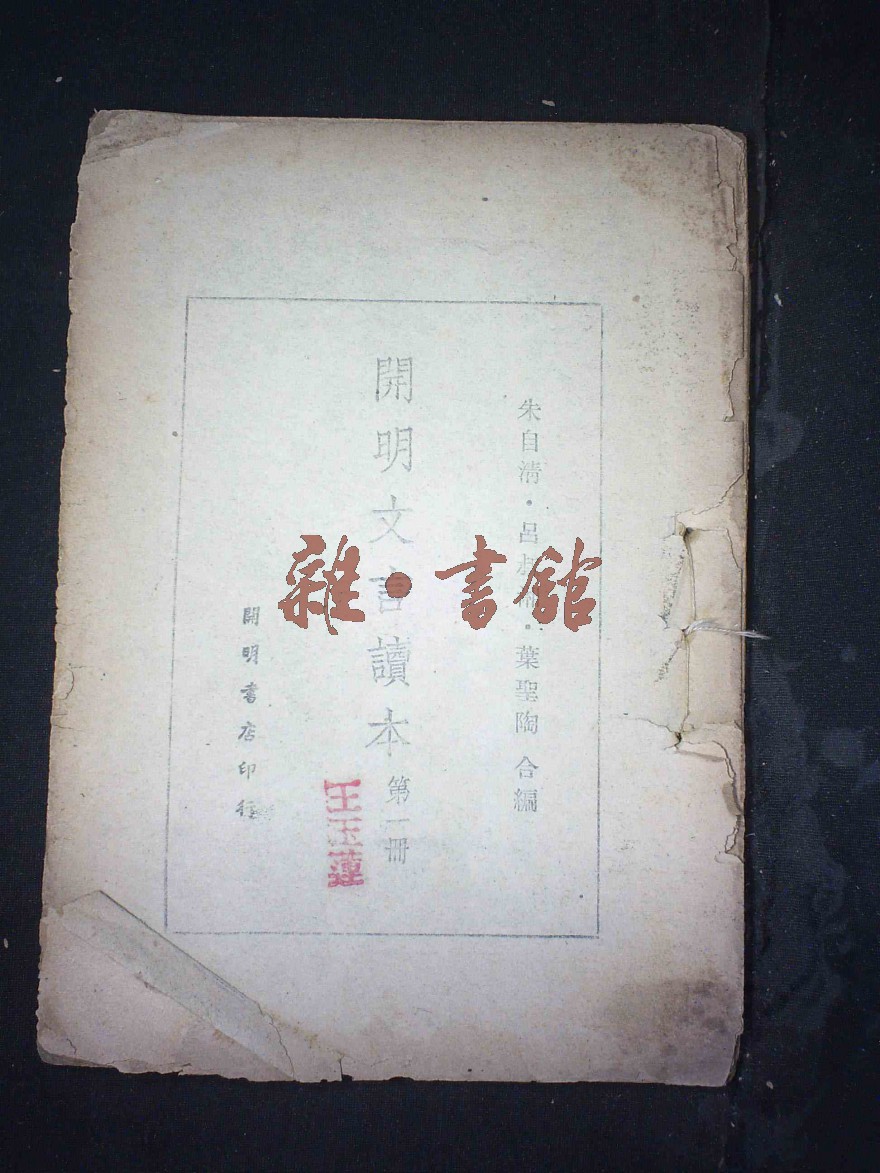 朱自清・呂叔湘・葉聖陶 合編
開明文言讀本 第一冊
王玉蓮
開明書店印行
雜●書館